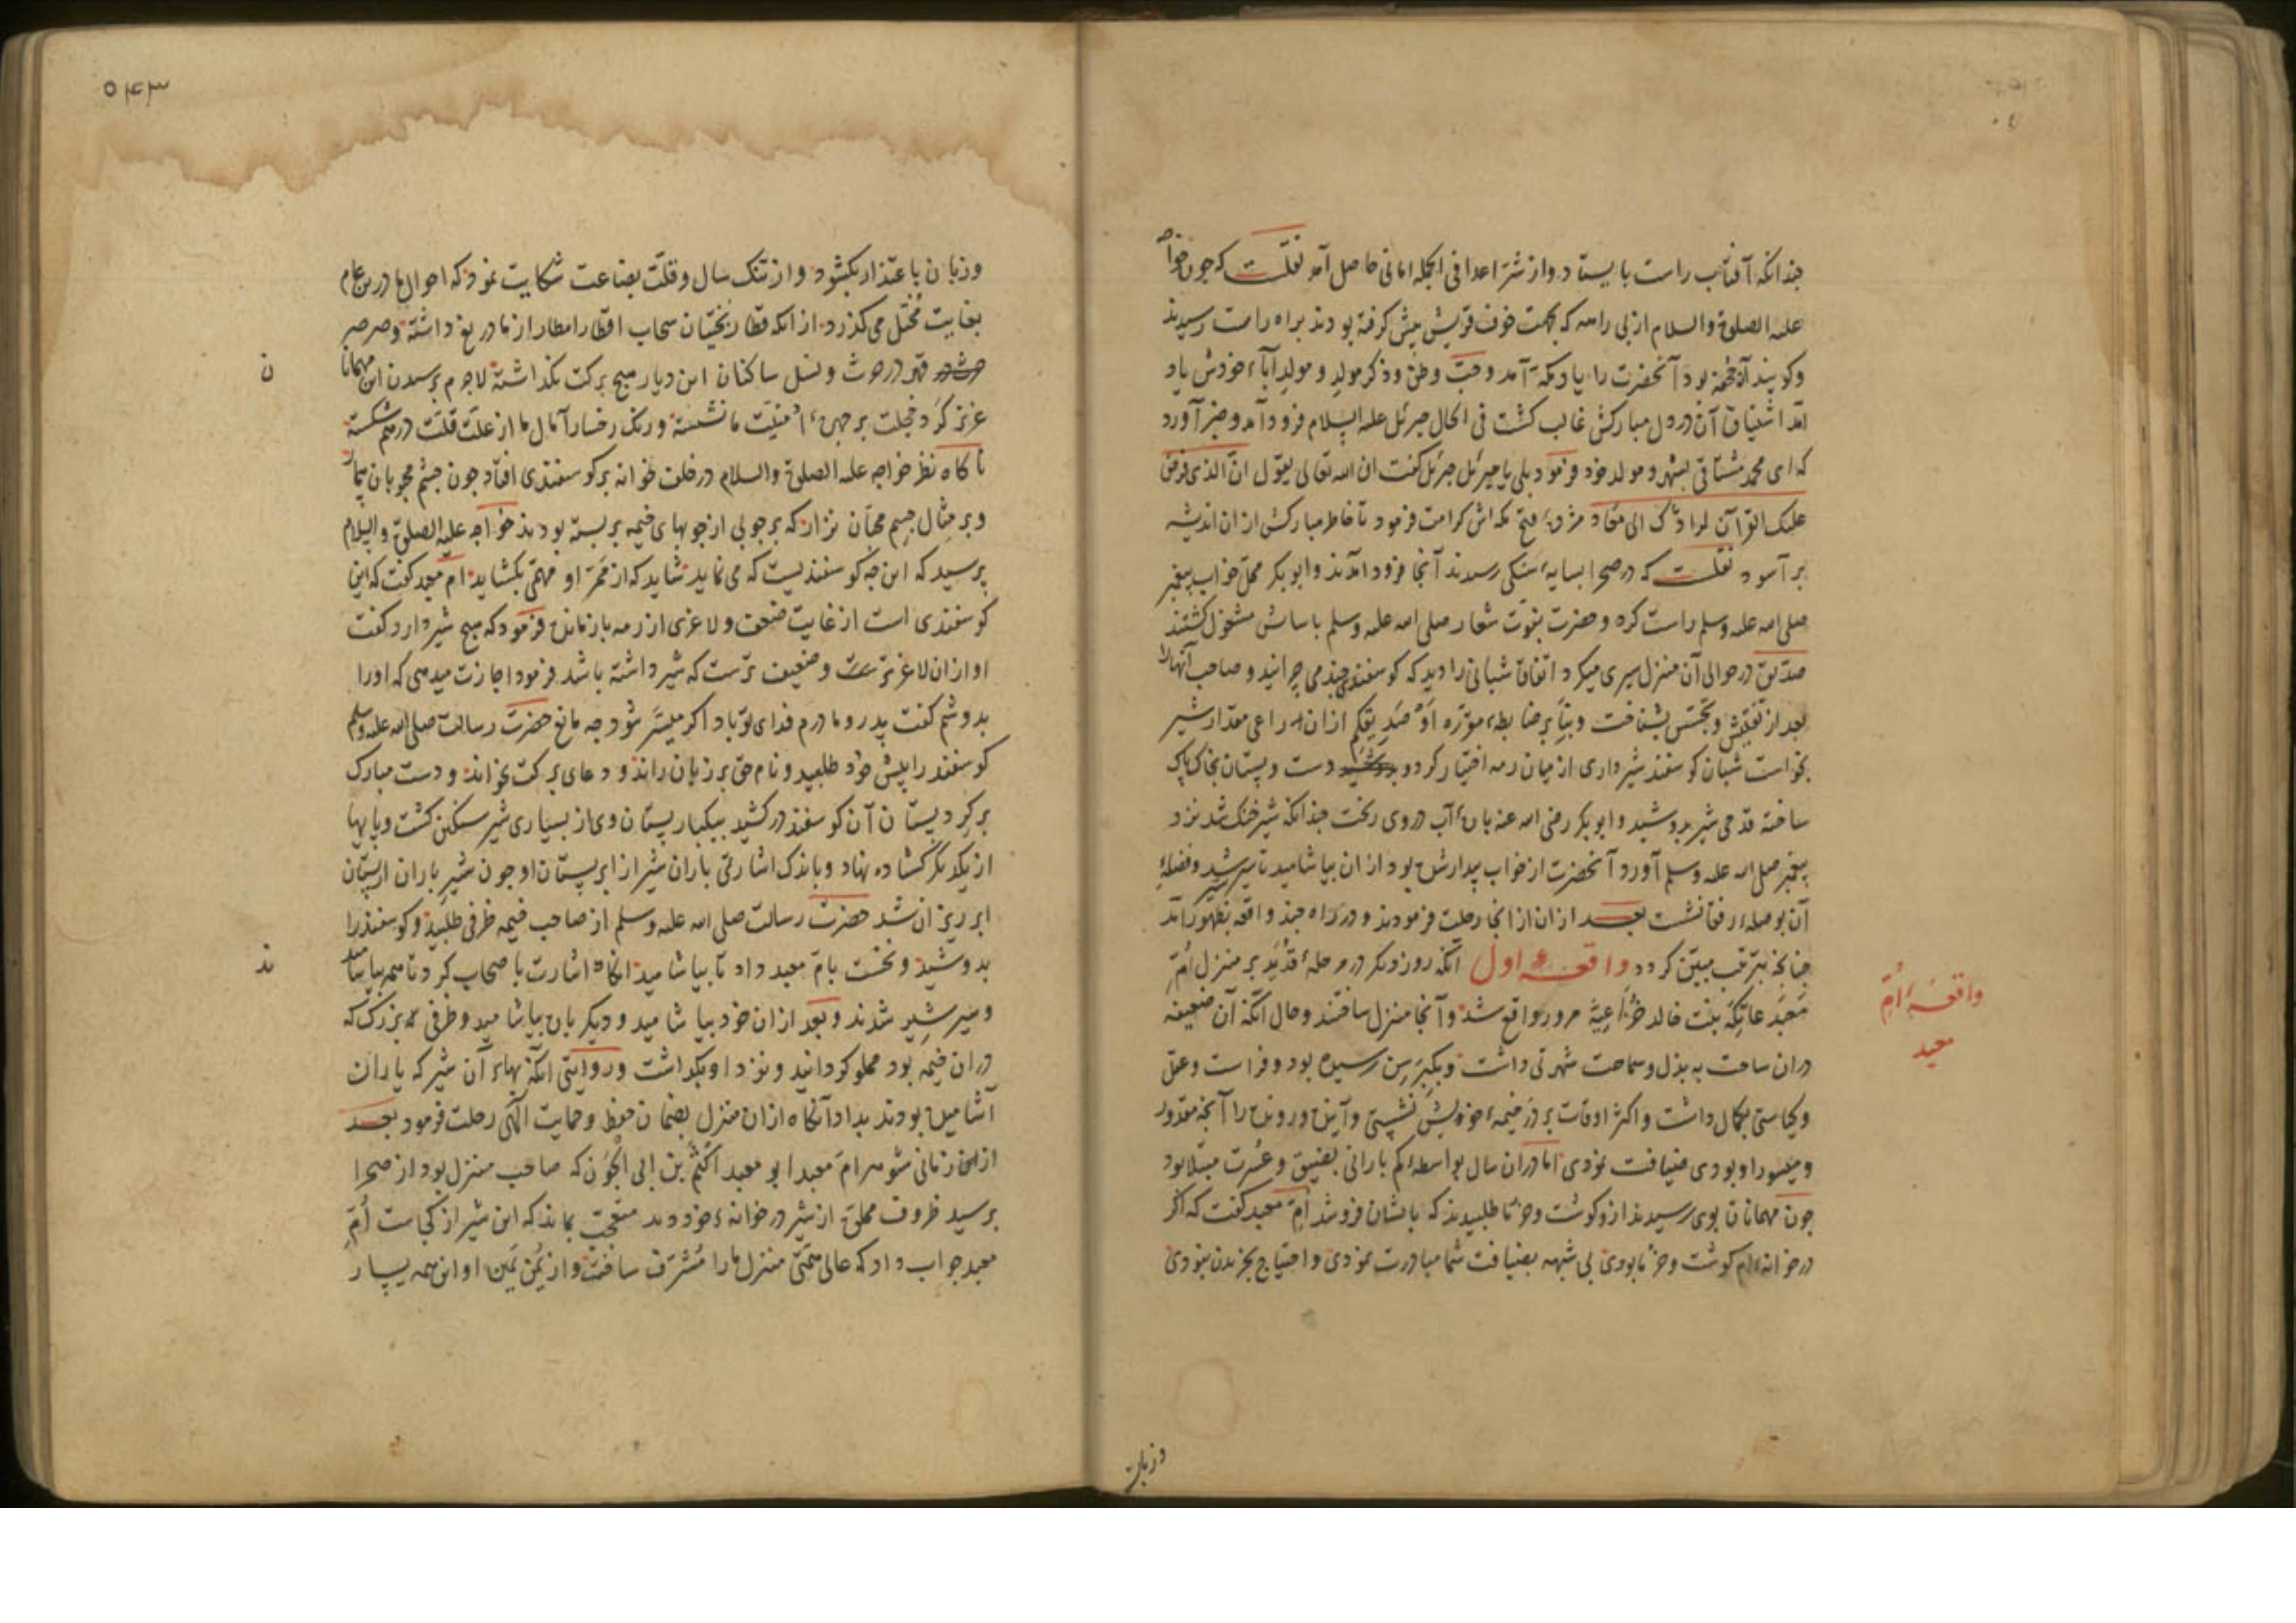 چندانکه آفتاب راست بایستاد و از شر اعدا فی الجمله امانی حاصل آمد نقلست که چون خواجه
علیه الصلوة والسلام از بی راهه که بجهت خوف قریش پیش گرفته بودند براه راست رسیدند
وکویند آن جحفه بود آنحضرت را یاد مکه آمد وحب وطن وذکر مولد و مولد آباء خودش یاد
آمد اشتیاق آن در دل مبارکش غالب کشت فی الحال جبرئیل علیه السلام فرود آمد وخبر آورد
که ای محمد مشتاقی بشهر و مولد خود فرمود بلی یا جبرئیل جبرئیل کفت ان الله تعالی یقول ان الذی فرض
علیک القرآن لرادّک الی معاد مژدهٔ فتح مکه اش کرامت فرمود تا خاطر مبارکش از ان اندیشه
بر آسود نقلست که در صحرا بسایهٔ سنکی رسیدند آنجا فرود آمدند وابو بکر محل خواب پیغمبر
صلی الله علیه وسلم راست کرده و حضرت نبوت شعار صلی الله علیه وسلم باسایش مشغول کشتند
صدیق در حوالی آن منزل سیری میکرد اتفاقا شبانی را دید که کوسفندی چند می چرانید و صاحب آنها را
بعد از تفتیش وتجسس بشناخت وبناء بر ضابطهٔ موثره او صدیقکم ازان راعی مقدار شیر
بخواست شبان کوسفند شیرداری از میان رمه اختیار کرد و دست وپستان بخاک پاک
ساخته قدحی شیر بدوشید وابو بکر رضی الله عنه پارهٔ آب در وی ریخت چندانکه شیر خنک شد نزد
پیغمبر صلی الله علیه وسلم آورد آنحضرت از خواب بیدار شده بود ازان بیاشامید تا سیر شد وفضلهٔ
آن بوصلهٔ رفقا نشست بعد ازان از انجا رحلت فرمودند و در راه چند واقعه بظهور آمد
چنانچه بترتیب مبین کردد واقعهٔ اول آنکه روز دیکر در مرحلهٔ قدید بر منزل اُمّ
مَعبَد عاتکه بنت خالد خزاعیه مرور واقع شد وآنجا منزل ساختند وحال آنکه آن ضعیفه
دران ساحت به بذل وسماحت شهرتی داشت وبکبر سن رسیده بود وفراست وعقل
وکیاستی بکمال داشت واکثر اوقات بر در خیمهٔ خویش نشستی وآینده ورونده را آنچه مقدور
ومیسور او بودی ضیافت نمودی اما دران سال بواسطهٔ کم بارانی بضیق وعسرت مبتلا بود
چون مهمانان بوی رسیدند ازو کوشت وخرما طلبیدند که بایشان فروشد ام معبد کفت که اکر
در خانه ام کوشت وخرما بودی بی شبهه بضیافت شما مبادرت نمودی واحتیاج بخریدن نبودی
واقعهٔ اُمّ
معبد
وزبان
۵۴۳
وزبان باعتذار بکشود واز تنک سال وقلت بضاعت شکایت نمود که احوال ما درین عام
بغایت مختل می کذرد از انکه قطار بختیان سحاب اقطار امطار از ما دریغ داشته وصرصر
قهر در حرث ونسل ساکنان این دیار هیچ برکت نکذاشته لاجرم برسیدن این مهمانان
عزیز کرد خجلت بر چهرهٔ امنیت ما نشسته ورنک رخسار آمال ما از علت قلت درهم شکسته
ناکاه نظر خواجه علیه الصلوة والسلام در خلف خانه بر کوسفندی افتاد چون چشم محبوبان بیمار
وبر مثال جسم محبان نزار که بر چوبی از چوبهای خیمه بر بسته بودند خواجه علیه الصلوة والسلام
پرسید که این چه کوسفندیست که می نماید شاید که از ممر او مهمی بکشاید ام معبد کفت که این
کوسفندی است از غایت ضعف ولاغری از رمه باز مانده فرمود که هیچ شیر دارد کفت
او ازان لاغرترست وضعیف ترست که شیر داشته باشد فرمود اجازت میدهی که او را
بدوشم کفت پدر ومادرم فدای تو باد اکر میسر شود چه مانع حضرت رسالت صلی الله علیه وسلم
کوسفند را پیش خود طلبید ونام حق بر زبان راند و دعای برکت بخواند و دست مبارک
بر کرد پستان آن کوسفند در کشید بیکبار پستان وی از بسیاری شیر سنکین کشت وپایها
از یکدیکر کشاده نهاد وباندک اشارتی باران شیر از ابر پستان او چون شیر باران از پستان
ابر ریزان شد حضرت رسالت صلی الله علیه وسلم از صاحب خیمه ظرفی طلبید وکوسفند را
بدوشید ونخست بام معبد داد تا بیاشامید انکاه اشارت باصحاب کرد تا همه بیاشامید
وسیر شیر شدند وبعد ازان خود بیاشامید ودیکر باره بیاشامید وظرفی که بزرک که
دران خیمه بود مملو کردانید ونزد او بکذاشت وروایتی آنکه بهاء آن شیر که یاران
آشامیده بودند بداد آنکاه ازان منزل بضمان حفظ وحمایت الهی رحلت فرمود بعد
از این زمانی شوهر ام معبد ابو معبد اکثم بن ابی الجون که صاحب منزل بود از صحرا
برسید ظروف مملو از شیر در خانهٔ خود دید متعجب بماند که این شیر از کجاست اُمّ
معبد جواب داد که عالی همتی منزل ما را مشرف ساخت واز یمن یمین او این همه یسار
ن
ند